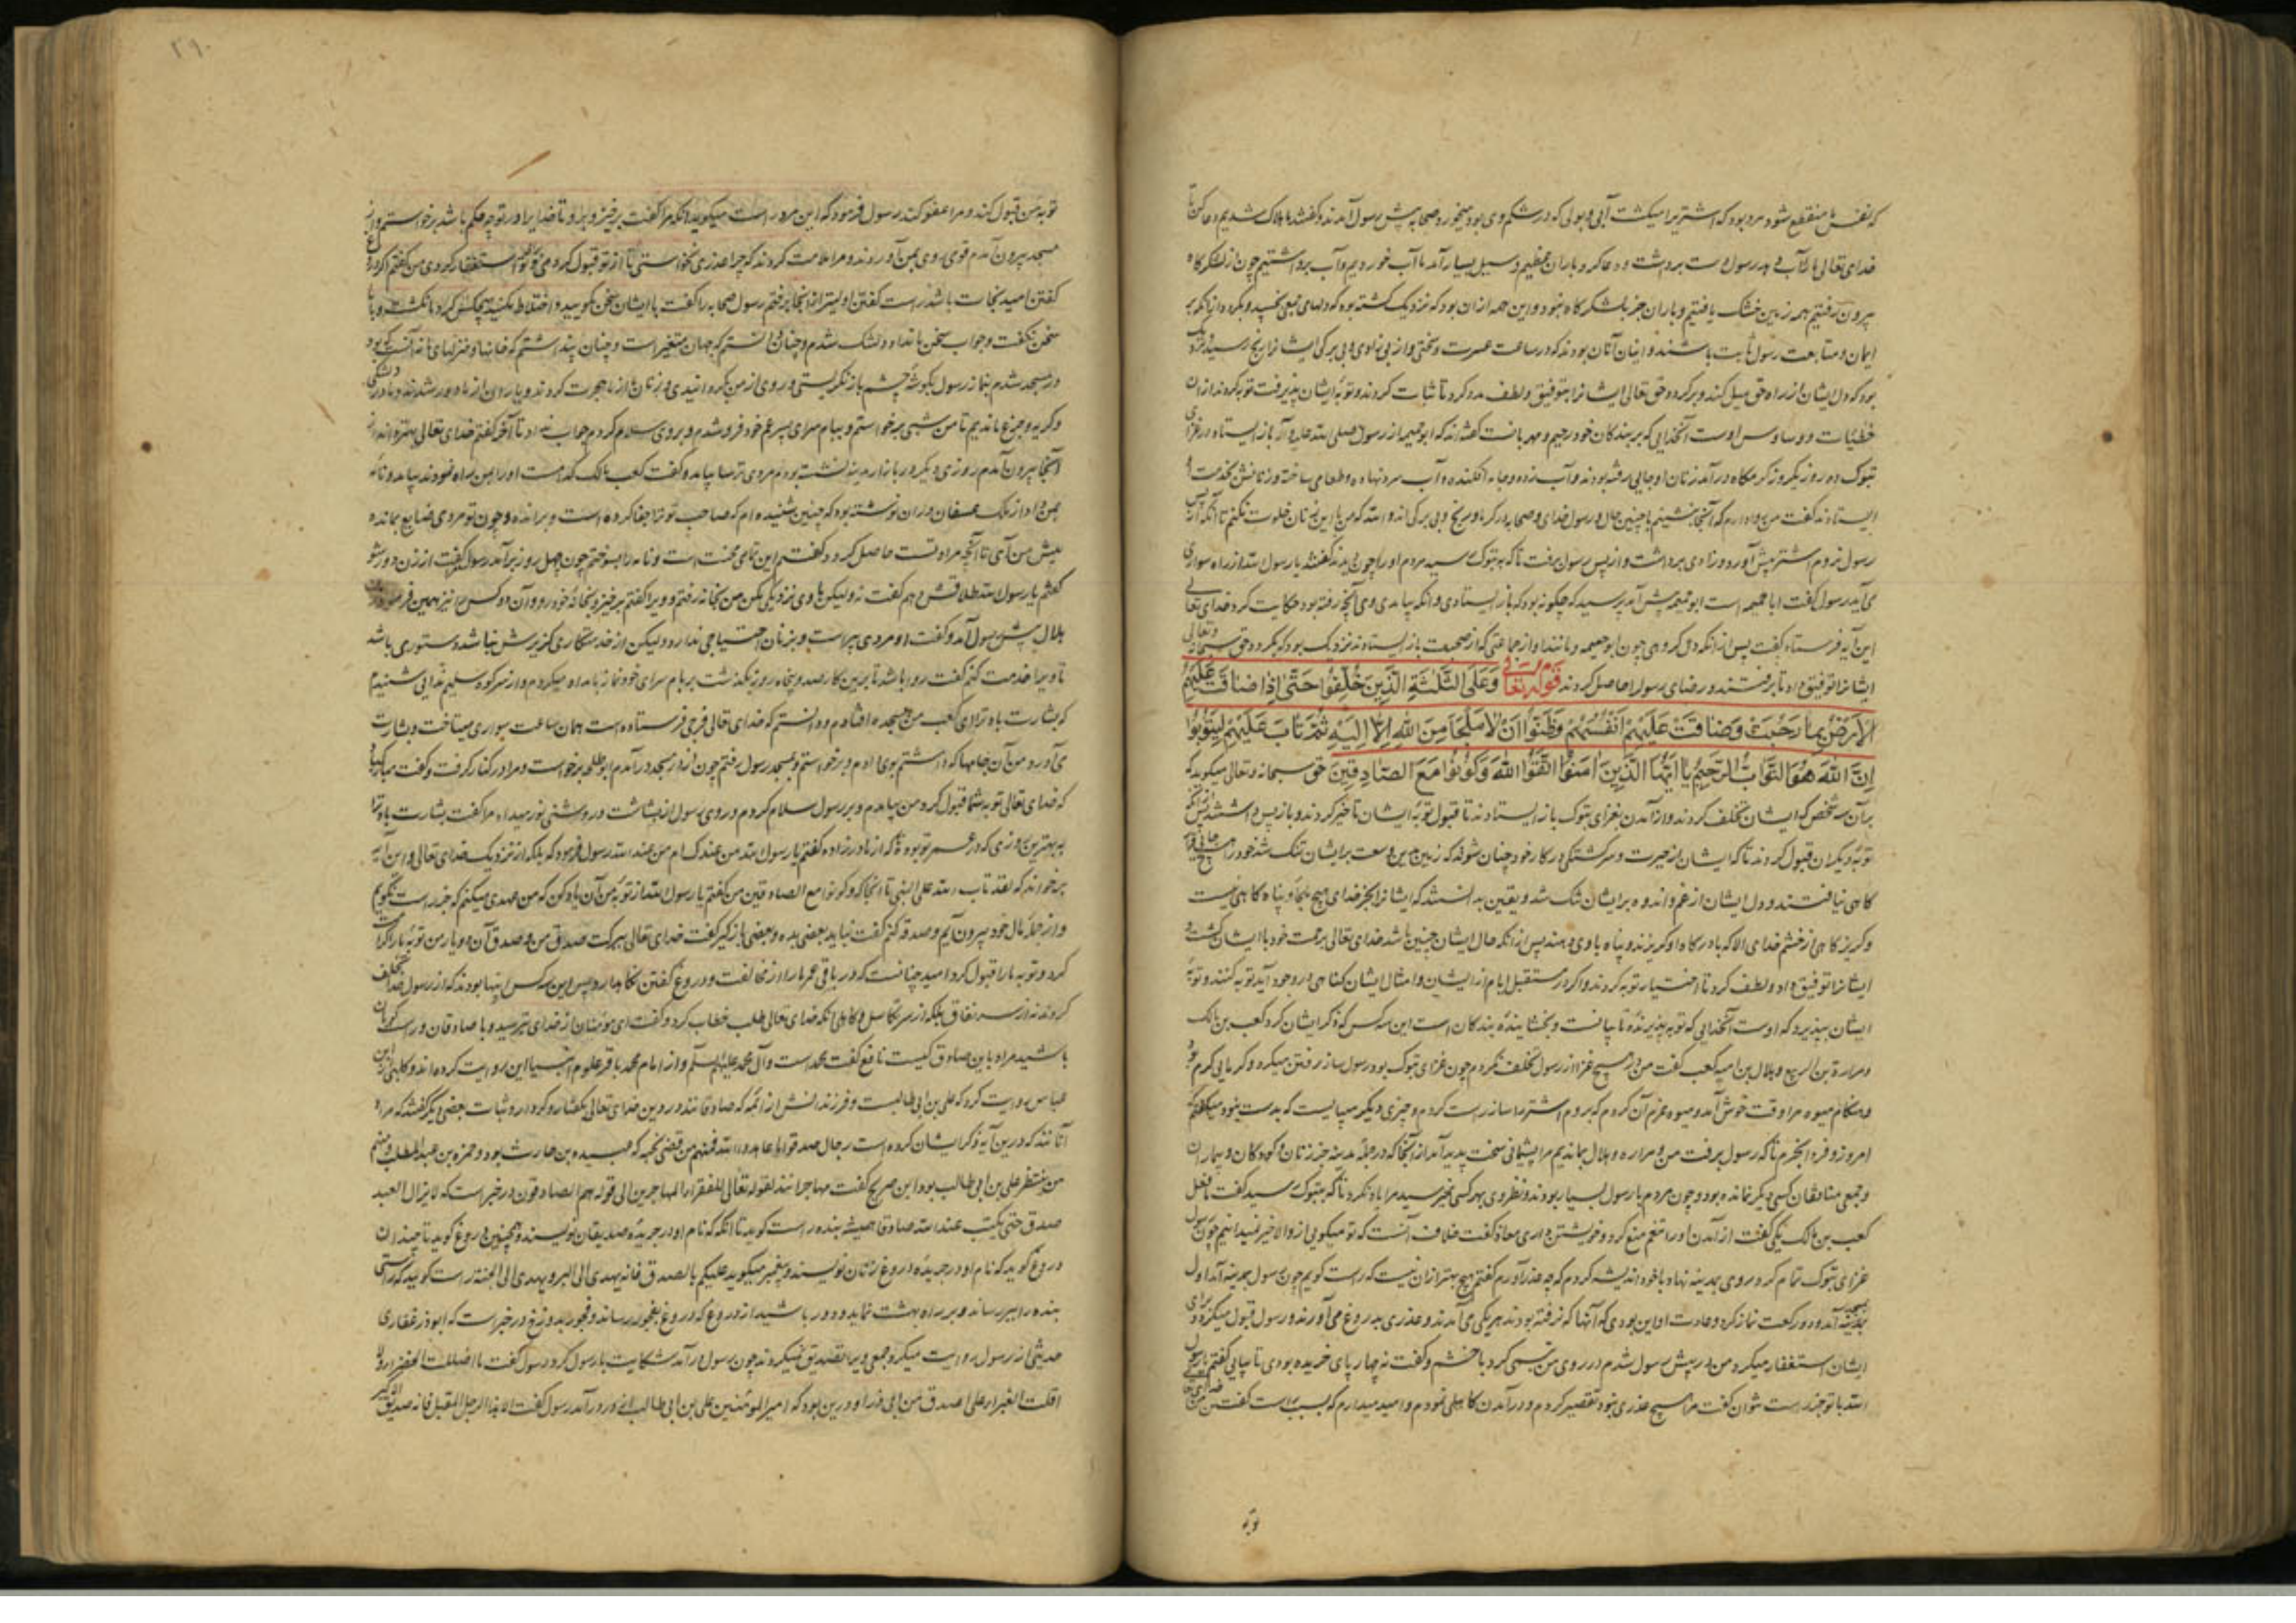 که نفس ما منقطع شود مرد بود که اشتر را میکشت آبی و بولی که در شکم وی بود میخورد صحابه پیش رسول آمدند و گفتند ما هلاک شدیم دعا کن تا
خدای تعالی ما را آب دهد رسول دست برداشت و دعا کرد باران عظیم و سیل بسیار آمد تا آب خوردیم و آب برداشتیم چون از لشکرگاه
بیرون رفتیم همه زمین خشک یافتیم و باران جز بلشکرگاه نبود و این همه از آن بود که نزدیک گشته بود که دلهای جمعی بخسبد و بگردد از آنکه بر
ایمان و متابعت رسول ثابت باشند و اینان آنان بودند که در ساعت عسرت و سختی و از بی زادی و بی برگی ایشانرا رنج رسید نزدیک
بود که دل ایشان از راه حق میل کند و برگردد حق تعالی ایشانرا بتوفیق و لطف مدد کرد تا ثبات کردند و توبه ایشان پذیرفت توبه کردند از آن
خطیات و وساوس اوست آنخدایی که بر بندگان خود رحیم و مهربانست گفته‌اند که ابوخیثمه از رسول صلی الله علیه و آله باز ایستاد در غزای
تبوک ده روز یکروز گرمگاه درآمد زنان او جایی رفته بودند و آب زده و جامه افکنده و آب سرد نهاده و طعامی ساخته و زنانش بخدمت
ایستادند گفت من روا دارم که آنجا بنشینم با چنین حال و رسول خدای و صحابه در گرما و رنج و بی برگی اند والله که من با این زنان خلوت نکنم تا آنکه از پس
رسول نروم اشتر پیش آورد و زادی برداشت و از پس رسول برفت تا که به تبوک رسید مردم او را چون بدیدند گفتند یا رسول الله از راه سواری
می آید رسول گفت ابا خیثمه است ابوخیثمه پیش آمد پرسید که چگونه بود که باز ایستادی و آنگه بیامدی وی آنچه رفته بود حکایت کرد خدای تعالی
این آیه فرستاد گفت پس از آنکه دل گروهی چون ابوخیثمه و مانند او از جماعتی که از صحبت باز ایستادند نزدیک بود که بگردد حق سبحانه و تعالی
ایشانرا توفیق داد تا برفتند و رضای رسول را حاصل کردند قوله تعالی وَعَلَى الثَّلٰثَةِ الَّذِينَ خُلِّفُوا حَتّٰى اِذَا ضَاقَتْ عَلَيْهِمُ
الْاَرْضُ بِمَا رَحُبَتْ وَضَاقَتْ عَلَيْهِمْ اَنْفُسُهُمْ وَظَنُّوا اَنْ لَا مَلْجَاَ مِنَ اللّٰهِ اِلَّا اِلَيْهِ ثُمَّ تَابَ عَلَيْهِمْ لِيَتُوبُوا
اِنَّ اللّٰهَ هُوَ التَّوَّابُ الرَّحِيمُ يَا اَيُّهَا الَّذِينَ اٰمَنُوا اتَّقُوا اللّٰهَ وَكُونُوا مَعَ الصَّادِقِينَ حق سبحانه و تعالی میگوید که
بر آن سه شخص که ایشان تخلف کردند و از آمدن بغزای تبوک باز ایستادند تا قبول توبه ایشان تاخیر کردند و باز پس داشتند پس از آنکه
توبه دیگران قبول کردند تا که ایشان از حیرت و سرگشتگی در کار خود چنان شدند که زمین بدین وسعت بر ایشان تنگ شد خود را هیچ
گاهی نیافتند و دل ایشان از غم و اندوه بر ایشان تنگ شد و یقین بدانستند که ایشانرا بجز خدای هیچ ملجأ و پناه گاهی نیست
و گریزگاهی از خشم خدای الا که با درگاه او گریزند و پناه با وی دهند پس از آنکه حال ایشان چنین باشد خدای تعالی برحمت خود با ایشان گشت و
ایشانرا توفیق داد و لطف کرد تا اختیار توبه کردند و اگر در مستقبل ایام از ایشان و امثال ایشان گناهی در وجود آید توبه کنند و توبه
ایشان بپذیرد که اوست آنخدایی که توبه پذیرنده تایبانست و بخشاینده بندگان است این سه کس که ذکر ایشان کرد کعب بن مالک
و مرارة بن الربیع و هلال بن امیه کعب گفت من در هیچ غزا از رسول تخلف نکردم چون غزای تبوک بود رسول ساز رفتن میکرد و گرمایی گرم بود
و هنگام میوه مرا وقت خوش آمد و میوه عزم آن کردم که بروم اشتر را ساز راست کردم و چیزی دیگر میبایست که بدست نبود میگفتم که
امروز و فردا بخرم تا که رسول برفت من و مراره و هلال بماندیم مرا پشیمانی سخت پدید آمد از آنجا که در جمله مدینه جز زنان و کودکان و بیماران
و جمعی منافقان کسی دیگر نمانده بود و چون مردم با رسول بسیار بودند و نظر وی بهر کسی نمیرسید مرا یاد نکرد تا که بتبوک رسید گفت ما فعل
کعب بن مالک یکی گفت از آمدن او را تنعم منع کرد و خویشتن داری معاذ گفت خلاف آنست که تو میگویی از او الا خیر نمیدانیم چون رسول
غزای تبوک تمام کرد و روی بمدینه نهاد با خود اندیشه کردم که چه عذر آورم گفتم هیچ بهتر از آن نیست که راست گویم چون رسول بمدینه آمد اول
بمسجد آمد و دو رکعت نماز کرد و عادت او این بودی که آنها که نرفته بودند هر یکی می آمدند و عذری بدروغ می آوردند و رسول قبول میکرد و برای
ایشان استغفار میکرد من در پیش رسول شدم در روی من تبسمی کرد با خشم و گفت نه چهارپای خریده بودی تا بیایی گفتم یا رسول
الله با تو جز راست نتوان گفت مرا هیچ عذری نبود تقصیر کردم و در آمدن کاهلی نمودم و امید میدارم که بسبب راست گفتن من
توبه
توبه من قبول کند و مرا عفو کند رسول فرمود که این مرد راست میگوید آنگه مرا گفت برخیز و برو تا خدایرا در تو چه حکم باشد برخاستم و از
مسجد بیرون آمدم قوم روی بمن آوردند و مرا ملامت کردند که چرا عذری نخواستی تا از تو قبول کردی و برای تو استغفار کردی من گفتم اگر در
گفتن امید نجات باشد راست گفتن اولیتر از آنجا برفتم رسول صحابه را گفت با ایشان سخن مگویید و اختلاط مکنید هیچکس گرد ما نگشت و با ما
سخن نگفت و جواب سخن ما نداد دلتنگ شدم و چنان دانستم که جهان متغیر است و چنان پنداشتم که خانها و منزلهای ما نه آنست که بود
در مسجد شدم بنماز رسول بگوشه چشم باز نگریستی و روی از من بگردانیدی و زنان از ما هجرت کردند و یاران از ما دور شدند و ما در دلتنگی
و گریه و جزع ماندیم تا من شبی برخاستم و ببام سرای پسر عم خود فرو شدم و بر وی سلام کردم جواب نداد تا آخر گفتم خدای تعالی بهتر داند از
آنجا بیرون آمدم روزی دیگر در بازار مدینه نشسته بودم مردی ترسا بیامد و گفت کعب مالک کدامست او را بمن راه نمودند بیامد و نامه
بمن داد از ملک غسان در آن نوشته بود که چنین شنیده‌ام که صاحب تو ترا جفا کرده است و برانده و چون تو مردی ضایع بمانده
پیش من آی تا آنچه مراد تست حاصل گردد گفتم این تمامی محنت است و نامه را بسوختم چون چهل روز برآمد رسول گفت از زن دور شو
گفتم یا رسول الله طلاقش دهم گفت نه ولیکن با وی نزدیکی مکن من بخانه رفتم و ویرا گفتم برخیز و بخانه خود رو و آن دو کس را نیز همین فرمود زن
هلال پیش رسول آمد و گفت او مردی پیر است و بزنان احتیاجی ندارد ولیکن از خدمتکاری گزیرش نباشد دستوری باشد
تا ویرا خدمت کنم گفت روا باشد تا برین کار صد و پنجاه روز بگذشت بر بام سرای خود نماز بامداد میکردم و از سر کوه سلیم ندایی شنیدم
که بشارت باد ترا ای کعب من بسجده افتادم و دانستم که خدای تعالی فرجی فرستاده است همان ساعت سواری میتاخت و بشارت
می آورد من آن جامها که داشتم بوی دادم و برخاستم و بمسجد رسول رفتم چون از در مسجد درآمدم ابوطلحه برخاست و مرا در کنار گرفت و گفت مبارکباد
که خدای تعالی توبه شما قبول کرد من بیامدم و بر رسول سلام کردم و روی رسول از بشاشت و روشنی نور میداد مرا گفت بشارت باد ترا
به بهترین روزی که در عمر تو بوده که از مادر زاده گفتم یا رسول الله من عندک ام من عند الله رسول فرمود که بلکه از نزدیک خدای تعالی و این آیه
برخواند که لقد تاب الله علی النبی تا آنجا که وکونوا مع الصادقین من گفتم یا رسول الله از توبه من آن باد کن که من عهدی میکنم که جز راست نگویم
و از جمله مال خود بیرون آیم و صدقه کنم گفت نباید بعضی بده و بعضی باز گیر گفت خدای تعالی ببرکت صدق من و صدق آن دو یار من توبه ما را کرامت
کرد و توبه ما را قبول کرد امید چنانست که در باقی عمر ما را از مخالفت و دروغ گفتن نگاه دارد پس این سه کس اینها بودند که از رسول خدا تخلف
کردند نه از سر نفاق بلکه از سر تکاسل و کاهلی آنگه خدای تعالی طلب خطاب کرد و گفت ای مؤمنان از خدای بترسید و با صادقان و راست گویان
باشید مراد باین صادق کیست نافع گفت محمد است و آل محمد علیهم السلم و از امام محمد باقر علوم انبیا این روایت کرده‌اند و کلبی از ابن
عباس روایت کرد که علی بن ابی طالبست و فرزندانش از ائمه که صادقانند در دین خدای تعالی بگفتار و کردار و ثبات بعضی دیگر گفتند که مراد
آنانند که درین آیه ذکر ایشان کرده است رجال صدقوا ما عاهدوا الله فمنهم من قضی نحبه که عبیده بن حارث بود و حمزه بن عبد المطلب و منهم
من ینتظر علی بن ابی طالب بود ابن جریج گفت مهاجرانند لقوله تعالی للفقراء المهاجرین الی قوله هم الصادقون در خبر است که لا یزال العبد
صدق حتی یکتب عند الله صادقا همیشه بنده راست گوید تا آنگه که نام او در جریده صدیقان نویسند و همچنین دروغ گوید تا چندان
دروغ گوید که نام او در جریده دروغ زنان نویسند و پیغمبر میگوید علیکم بالصدق فانه یهدی الی البر و یهدی الی الجنة راست گویید که راستی
بنده را ببر رساند و بر راه بهشت نماید و دور باشید از دروغ که دروغ بفجور رساند و فجور بدوزخ و در خبر است که ابوذر غفاری
حدیثی از رسول روایت میکرد جمعی ویرا تصدیق نمیکردند چون رسول درآمد شکایت با رسول کرد رسول گفت ما اظلت الخضراء ولا
اقلت الغبراء علی اصدق من ابی ذر او درین بود که امیر المؤمنین علی بن ابی طالب از در درآمد رسول گفت الا هذا الرجل المقبل فانه صدیق الاکبر